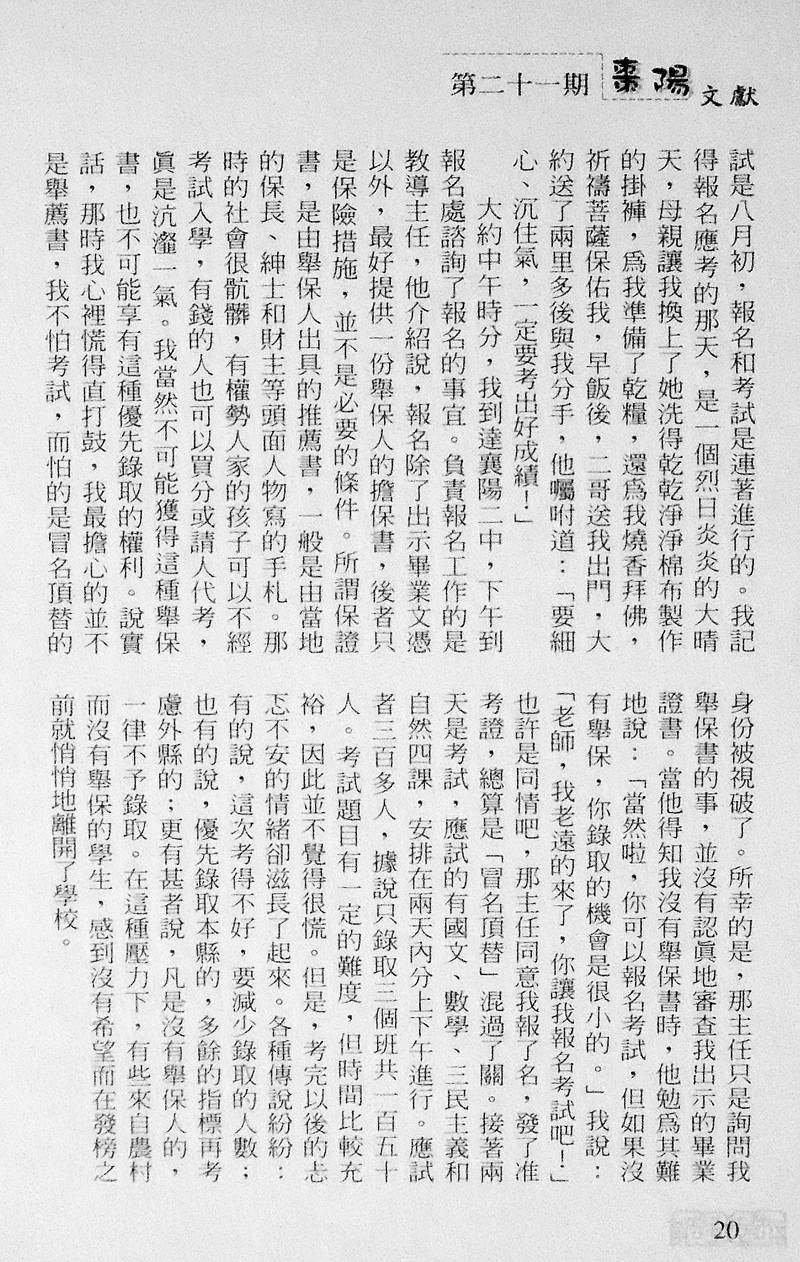 第二十一期 棗陽文獻
試是八月初，報名和考試是連著進行的。我記
得報名應考的那天，是一個烈日炎炎的大晴
天，母親讓我換上了她洗得乾乾淨淨棉布製作
的掛褲，爲我準備了乾糧，還爲我燒香拜佛，
祈禱菩薩保佑我，早飯後，二哥送我出門，大
約送了兩里多後與我分手，他囑咐道：「要細
心、沉住氣，一定要考出好成績！」
大約中午時分，我到達襄陽二中，下午到
報名處諮詢了報名的事宜。負責報名工作的是
教導主任，他介紹說，報名除了出示畢業文憑
以外，最好提供一份舉保人的擔保書，後者只
是保險措施，並不是必要的條件。所謂保證
書，是由舉保人出具的推薦書，一般是由當地
的保長、紳士和財主等頭面人物寫的手札。那
時的社會很骯髒，有權勢人家的孩子可以不經
考試入學，有錢的人也可以買分或請人代考，
眞是沆瀣一氣。我當然不可能獲得這種舉保
書，也不可能享有這種優先錄取的權利。說實
話，那時我心裡慌得直打鼓，我最擔心的並不
是舉薦書，我不怕考試，而怕的是冒名頂替的
身份被視破了。所幸的是，那主任只是詢問我
舉保書的事，並沒有認眞地審查我出示的畢業
證書。當他得知我沒有舉保書時，他勉爲其難
地說：「當然啦，你可以報名考試，但如果沒
有舉保，你錄取的機會是很小的。」我說：
「老師，我老遠的來了，你讓我報名考試吧！」
也許是同情吧，那主任同意我報了名，發了准
考證，總算是「冒名頂替」混過了關。接著兩
天是考試，應試的有國文、數學、三民主義和
自然四課，安排在兩天內分上下午進行。應試
者三百多人，據說只錄取三個班共一百五十
人。考試題目有一定的難度，但時間比較充
裕，因此並不覺得很慌。但是，考完以後的忐
忑不安的情緒卻滋長了起來。各種傳說紛紛：
有的說，這次考得不好，要減少錄取的人數；
也有的說，優先錄取本縣的，多餘的指標再考
慮外縣的；更有甚者說，凡是沒有舉保人的，
一律不予錄取。在這種壓力下，有些來自農村
而沒有舉保的學生，感到沒有希望而在發榜之
前就悄悄地離開了學校。
20